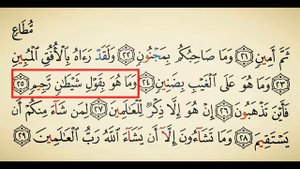 مُّطَاعٍ
ثَمَّ أَمِينٍ ﴿٢١﴾ وَمَا صَاحِبُكُم بِمَجْنُونٍ ﴿٢٢﴾ وَلَقَدْ رَءَاهُ بِالْأُفُقِ الْمُبِينِ
﴿٢٣﴾ وَمَا هُوَ عَلَى الْغَيْبِ بِضَنِينٍ ﴿٢٤﴾ وَمَا هُوَ بِقَوْلِ شَيْطَٰنٍ رَّجِيمٍ ﴿٢٥﴾
فَأَيْنَ تَذْهَبُونَ ﴿٢٦﴾ إِنْ هُوَ إِلَّا ذِكْرٌ لِّلْعَٰلَمِينَ ﴿٢٧﴾ لِمَن شَآءَ مِنكُمْ أَن
يَسْتَقِيمَ ﴿٢٨﴾ وَمَا تَشَآءُونَ إِلَّآ أَن يَشَآءَ اللَّهُ رَبُّ الْعَٰلَمِينَ ﴿٢٩﴾